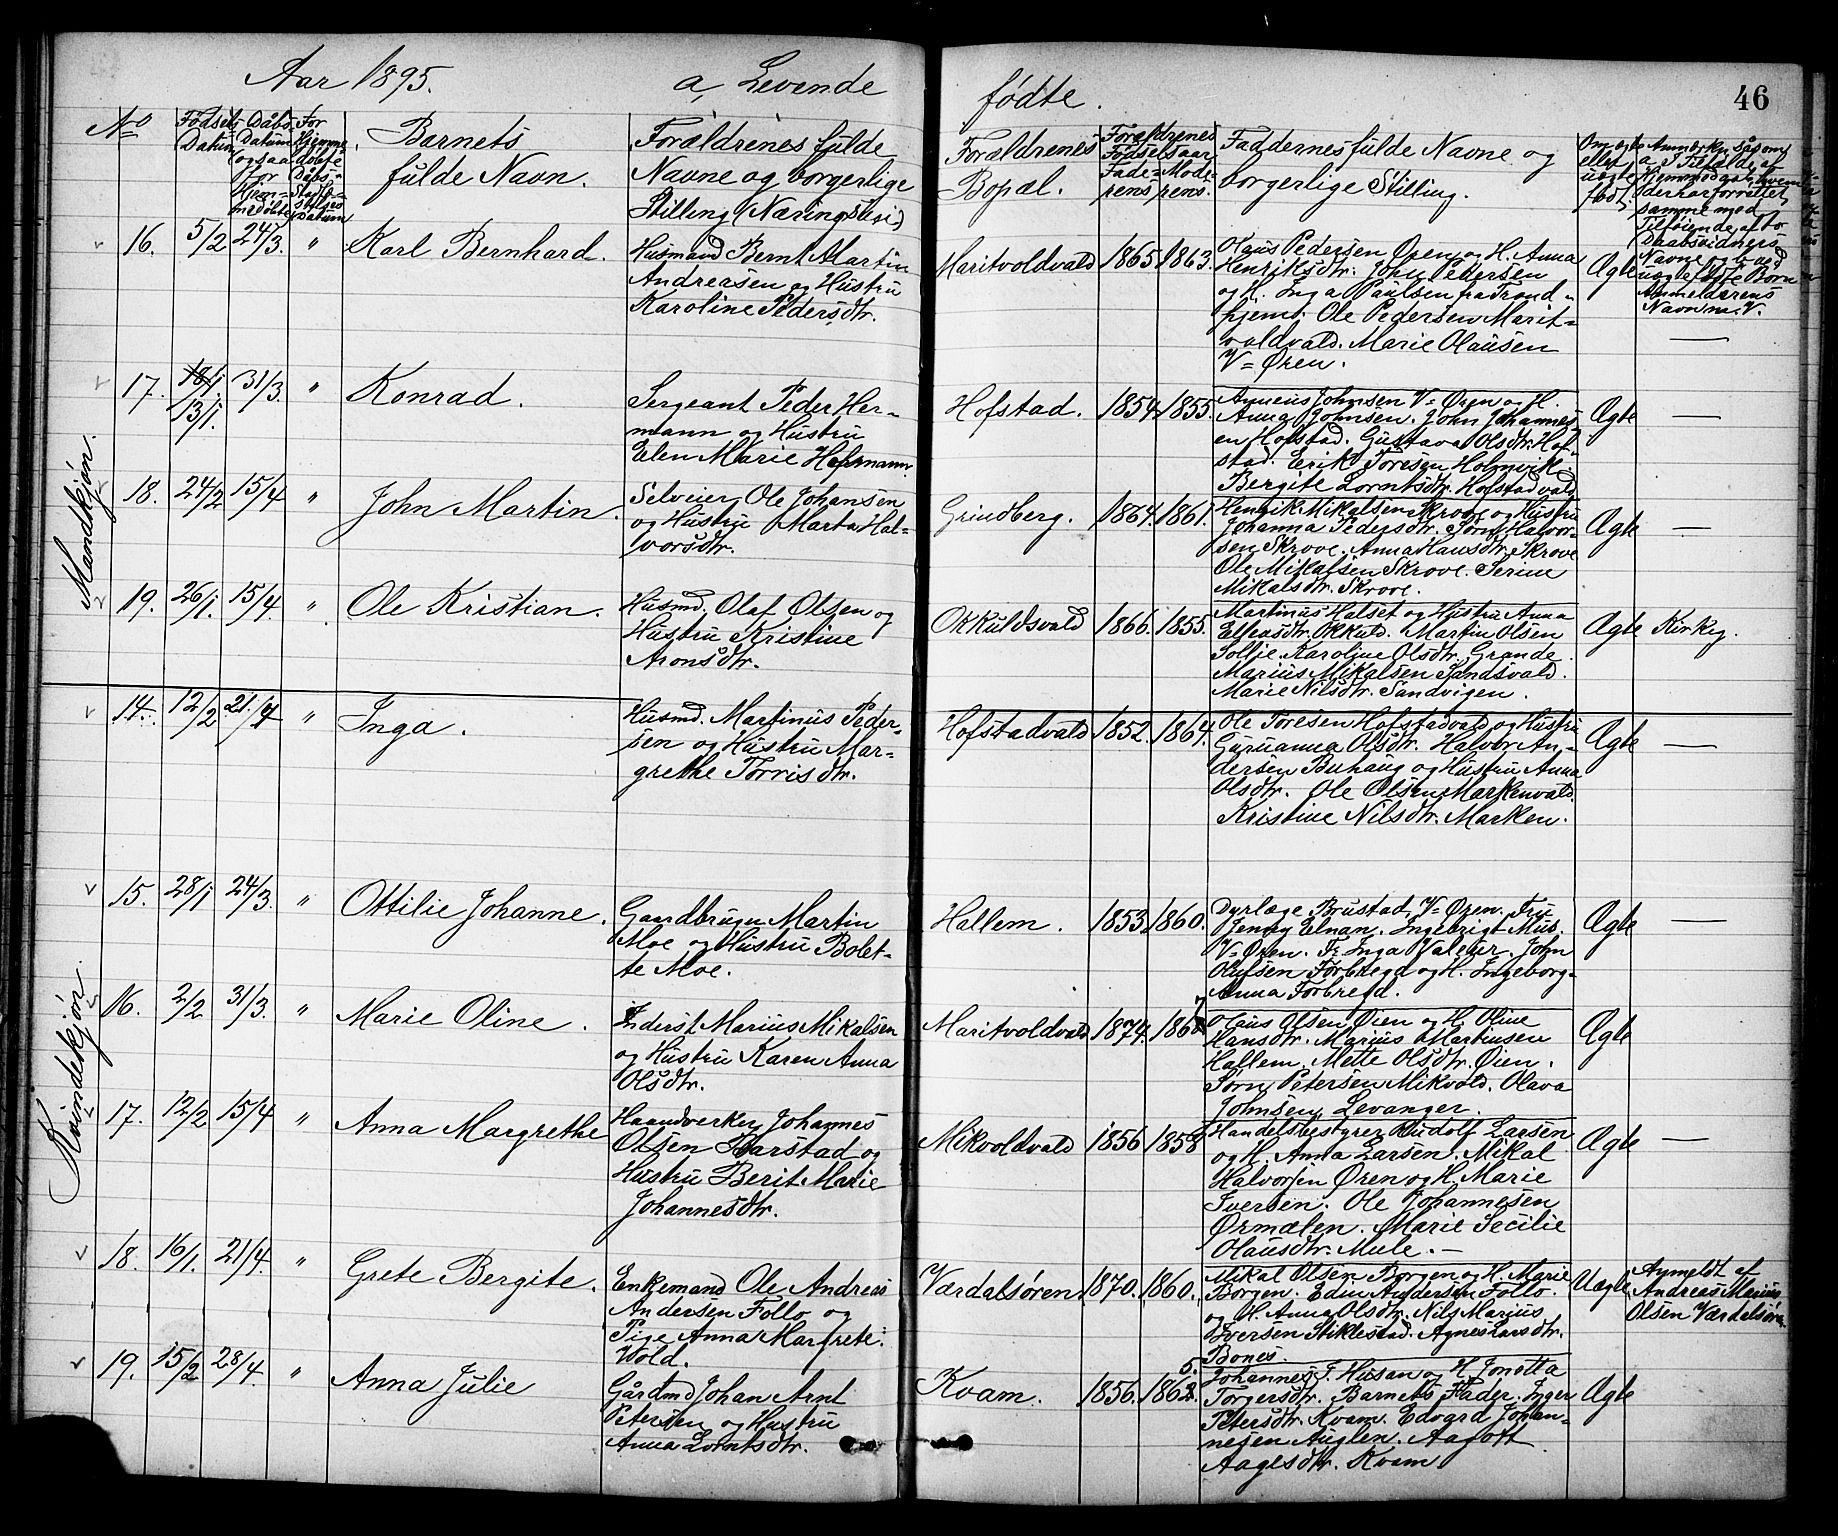 Aar 1895. a, Levende
fødte. 46
No
Fødsels Datum
Dåbs Datum ogsaa for Hjemmedøbte
For Hjemmedøbte Dåbs Stadfæstelses Datum
Barnets
fulde Navn.
Forældrenes fulde
Navne og borgerlige
Stilling (Næringsvei)
Forældrenes
Bopæl.
Forældrenes
Fødselsaar
Faderens Moderens.
Faddernes fulde Navne og
borgerlige Stilling.
Om ægte
eller
uægte
født.
Anmærkn. Såsom
a. I Tilfælde af
Hjemmedaab, hvem
der har forrettet
samme med
Tilføiende af to
Daabsvidners
Navne og b. ved
uægte fødte Børn
Anmelderens
Navn m.V.
Mandkjøn.
16. 5/2 24/3. " Karl Bernhard.
Husmand Bernt Martin
Andreasen og Hustru
Karoline Pedersdtr.
Maritvoldvald 1865 1863.
Olaus Pedersen Øren og H. Anna
Henriksdtr. John Petersen
og H. Inga Paulsen fra Trond-
hjem. Ole Pedersen Marit-
voldvald. Marie Olausen
V=Øren.
Ægte —
17. 18/1 13/1. 31/3. " Konrad.
Sergeant Peder Her-
mann og Hustru
Elen Marie Hermann
Hofstad. 1854 1855.
Anneus Johnsen V=Øren og H.
Anna Johnsen. John Johannes-
en Hofstad. Gustava Olsdtr. Hof-
stad. Erik Toresen Holmvik.
Bergite Lorntsdtr. Hofstadvald
Ægte —
18. 24/2 15/4 " John Martin.
Selveier Ole Johansen
og Hustru Marta Hal-
vorsdtr.
Grindberg. 1864. 1861.
Henrik Mikalsen Skrove og Hustru
Johanna Pedersdtr. Sørn Halvor-
sen Skrove. Anna Hansdtr. Skrove
Ole Mikalsen Skrove. Serine
Mikalsdtr. Skrove.
Ægte —
19. 26/1. 15/4. " Ole Kristian.
Husmd. Olaf Olsen og
Hustru Kristine
Aronsdtr.
Okkuldsvald 1866. 1855.
Martinus Halset og Hustru Anna
Ellensdtr. Okkuld. Martin Olsen
Sollie. Karoline Olsdtr. Grande.
Marius Mikalsen Sandsvald.
Marie Nilsdtr. Sandvigen.
Ægte Kirkeg.
Kvindekjøn.
14. 12/2 21/4 " Inga.
Husmd. Martinus Peder-
sen og Hustru Mar-
grethe Torrisdtr.
Hofstadvald 1852. 1864.
Ole Toresen Hofstadvald og Hustru
Guruanna Olsdtr. Halvor An-
dersen Buhaug og Hustru Anna
Olsdtr. Ole Olsen Markenvald.
Kristine Nilsdtr. Marken.
Ægte —
15. 28/1 24/3. " Ottilie Johanne.
Gaardbruger Martin
Moe og Hustru Bolet-
te Moe.
Hallem. 1853 1860.
Dyrlæge Brustad, V=Øren. Fru
Jenny Elnan. Ingebrigt Mus.
V=Øren. Fr. Inga Valeur. John
Olufsen Forbregd og H. Ingeborg-
Anna Forbregd.
Ægte —
16. 2/2 31/3. " Marie Oline.
Inderst Marius Mikalsen
og Hustru Karen Anna
Olsdtr.
Maritvoldvald 1874. 1867
Olaus Olsen Øien og H. Oline
Hansdtr. Marius Martinsen
Hallem. Mette Olsdtr. Øien.
Sørn Petersen Mikvold. Olava
Johnsen, Levanger.
Ægte
17. 12/2 15/4 " Anna Margrethe
Haandverker Johannes
Olsen Harstad og
Hustru Berit Marie
Johannesdtr.
Mikvoldvald 1856 1858
Handelsbestyrer Rudolf Larsen
og H. Anna Larsen. Mikal
Halvorsen Øren og H. Marie
Iversen. Ole Johannesen
Ørmælen. Marie Secilie
Olausdtr. Mule. —
Ægte —
18. 16/1. 21/4. " Grete Bergite.
Enkemand Ole Andreas
Andersen Follo og
Pige Anna Margrete
Wold.
Værdalsøren 1870. 1860.
Mikal Olsen Borgen og H. Marie
Borgen. Edin Andersen Follo
og H. Anna Olsdtr. Nils Marius
Iversen Stiklestad. Agnes Larsdtr.
Bones.
Uægte
Anmeldt af
Andreas Marius
Olsen Værdalsøren
19. 15/2 28/4. " Anna Julie
Gårdmd Johan Arnt
Petersen og Hustru
Anna Lorntsdtr.
Kvam. 1856. 1865
Johannes J. Husan og H. Jonetta
Torgersdtr. Barnets Fader. Inger
Petersdtr. Kvam. Edvard Johan-
nesen Auglen. Aagott
Aagesdtr. Kvam
Ægte